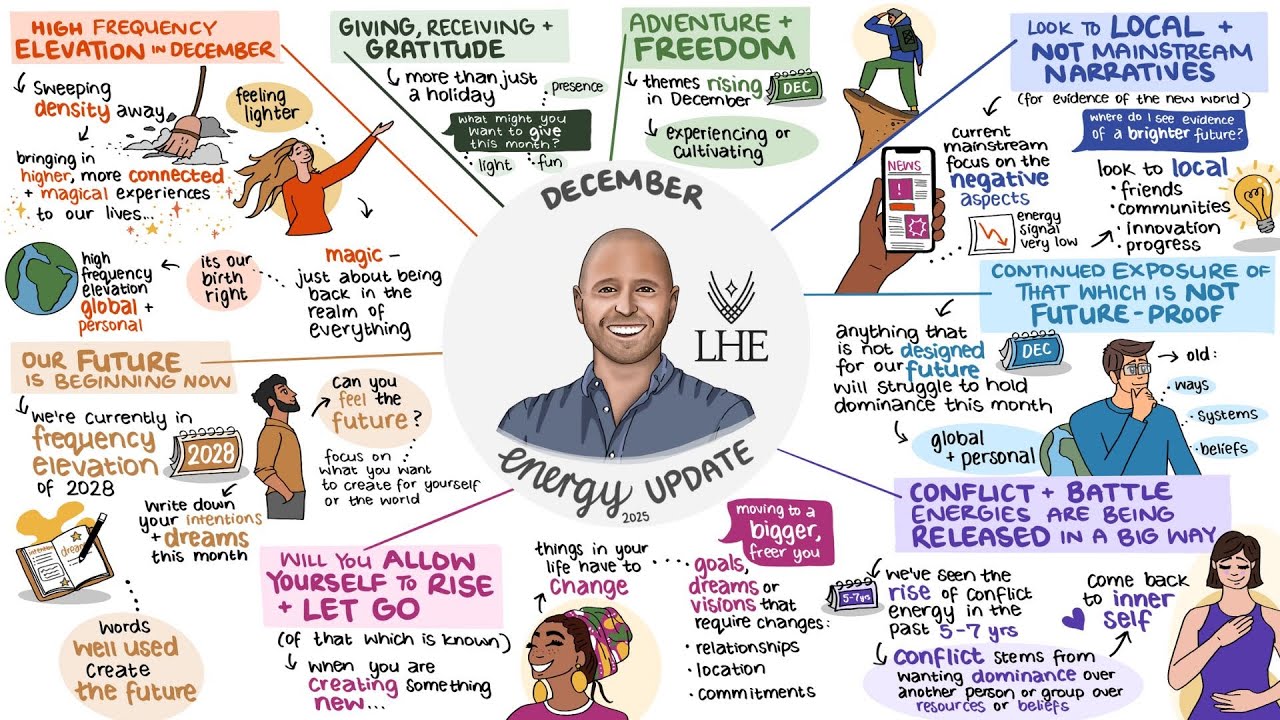 HIGH FREQUENCY
ELEVATION IN DECEMBER
Sweeping
density away
feeling
lighter
bringing in
higher, more connected
+ magical experiences
to our lives...
magic –
just about being
back in the
realm of
everything
its our
birth
right
high
frequency
elevation
global +
personal
GIVING, RECEIVING +
GRATITUDE
more than just
a holiday
presence
what might you
want to give
this month?
light
fun
ADVENTURE +
FREEDOM
themes rising
in December
DEC
experiencing or
cultivating
LOOK TO LOCAL +
NOT MAINSTREAM
NARRATIVES
(for evidence of the new world)
where do I see evidence
of a brighter future?
NEWS
!
current
mainstream
focus on the
negative
aspects
energy
signal
very low
look to local
• friends
• communities
• innovation
• progress
CONTINUED EXPOSURE OF
THAT WHICH IS NOT
FUTURE-PROOF
anything that
is not designed
for our future
will struggle to hold
dominance this month
DEC
old:
• ways
• systems
• beliefs
global
+ personal
CONFLICT + BATTLE
ENERGIES ARE BEING
RELEASED IN A BIG WAY
5-7 yrs
we've seen the
rise of conflict
energy in the
past 5-7 yrs
conflict stems from
wanting dominance over
another person or group over
resources or beliefs
come back
to inner
self
WILL YOU ALLOW
YOURSELF TO RISE
+ LET GO
(of that which is known)
when you are
creating something
new...
things in your
life have to
change
moving to a
bigger,
freer you
goals,
dreams or
visions that
require changes:
• relationships
• location
• commitments
OUR FUTURE
IS BEGINNING NOW
we're currently in
frequency
elevation
of 2028
2028
can you
feel the
future?
focus on
what you want
to create for yourself
or the world
write down
your intentions
+ dreams
this month
intentions
dreams
words
well used
create
the future
DECEMBER
LHE
energy UPDATE
2025